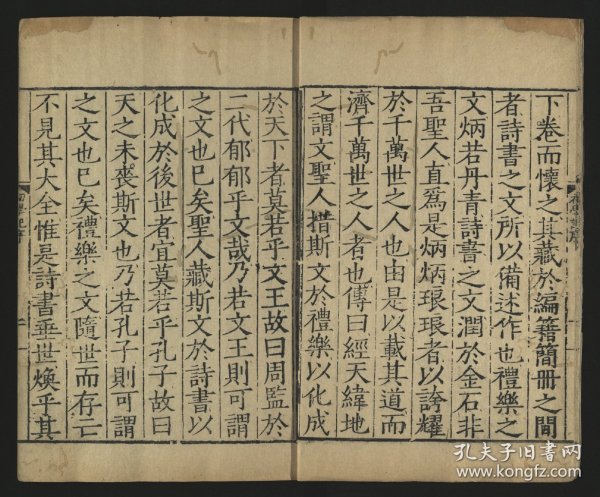 下卷而懷之其藏於編籍簡冊之間
者詩書之文所以備述作也禮樂之
文炳若丹青詩書之文潤於金石非
吾聖人直爲是炳炳琅琅者以誇耀
於千萬世之人也由是以載其道而
濟千萬世之人者也傳曰經天緯地
之謂文聖人措斯文於禮樂以化成
於天下者莫若乎文王故曰周監於
二代郁郁乎文哉乃若文王則可謂
之文也已矣聖人藏斯文於詩書以
化成於後世者宜莫若乎孔子故曰
天之未喪斯文也乃若孔子則可謂
之文也已矣禮樂之文隨世而存亡
不見其大全惟是詩書垂世煥乎其
孔夫子旧书网
www.kongfz.com